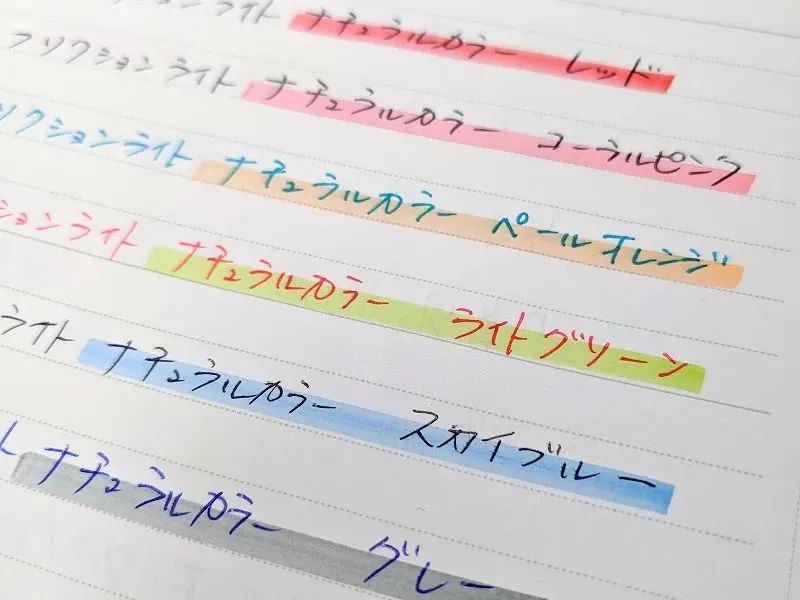 ションライト ナチュラルカラー レッド
フリクションライト ナチュラルカラー コーラルピンク
リクションライト ナチュラルカラー ペールオレンジ
ションライト ナチュラルカラー ライトグリーン
ライト ナチュラルカラー スカイブルー
ト ナチュラルカラー グレー